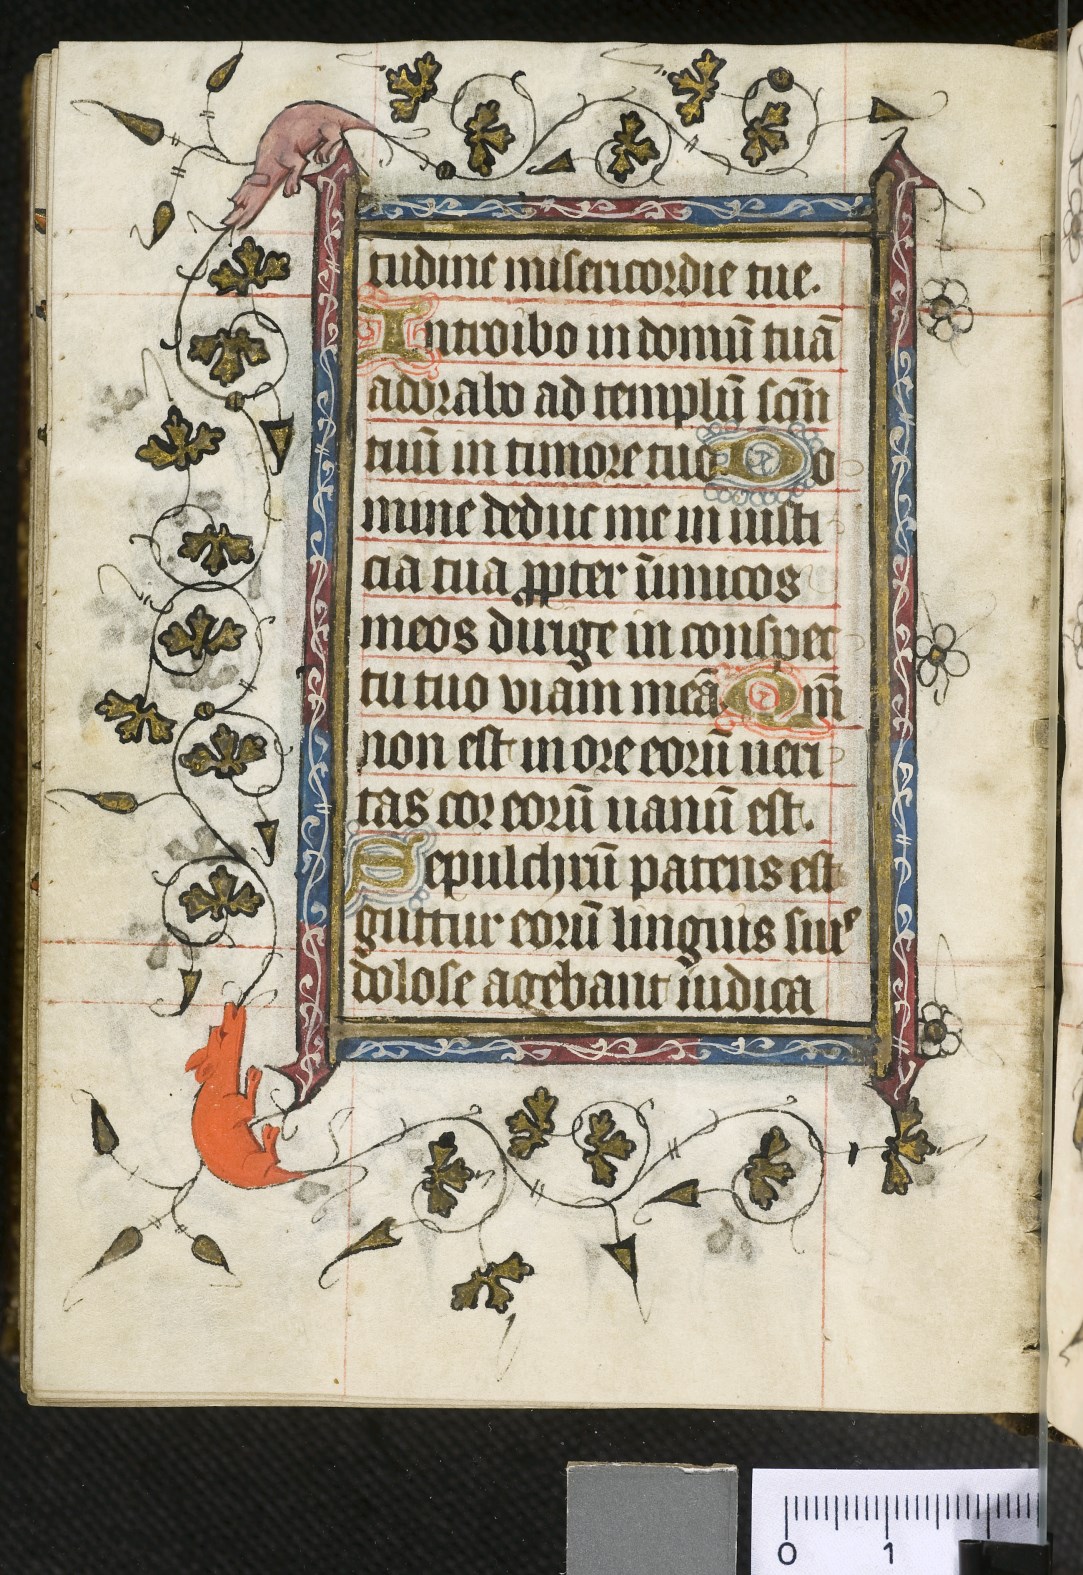 tudine misericordie tue.
Introibo in domū tuā
adorabo ad templū scm̄
tuū in timore tuo Do
mine deduc me in iusti
cia tua ꝓpter inimicos
meos dirige in conspec
tu tuo viam meā Qm̄
non est in ore eorū ueri
tas cor eorū uanū est.
Sepulchrū patens est
guttur eorū linguis suis
dolose agebant iudica
0 1